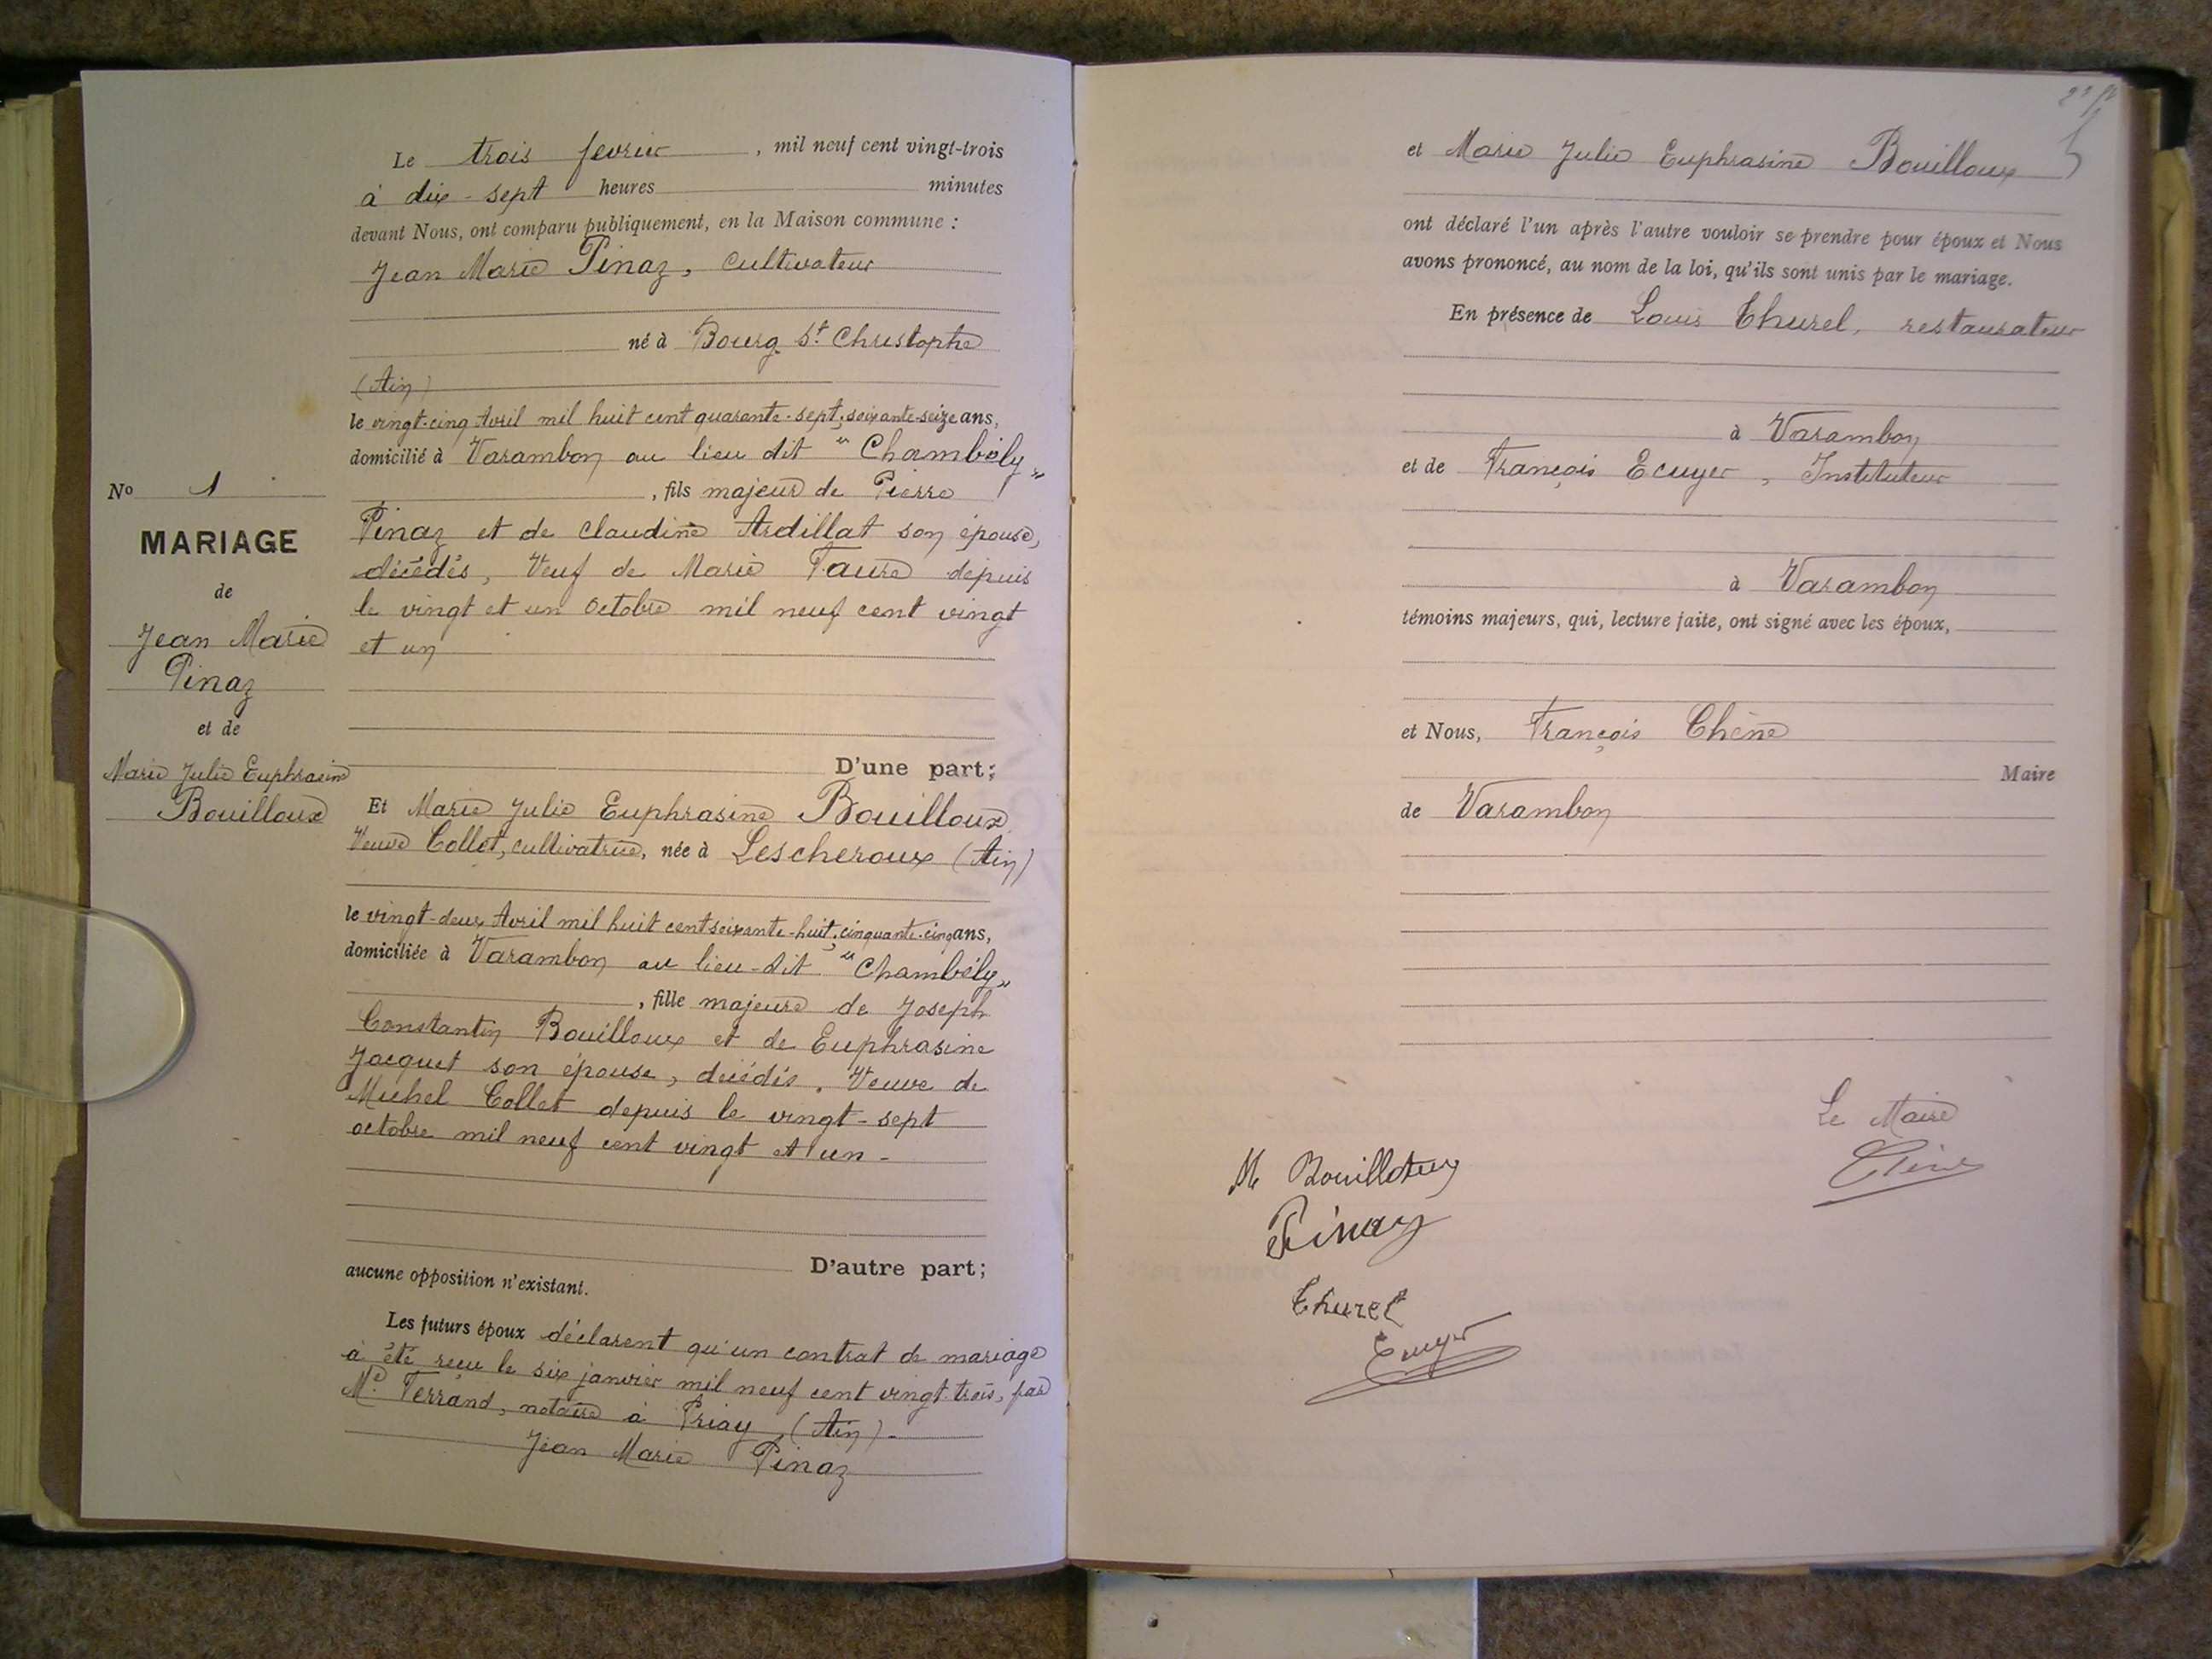 Le trois fevrier, mil neuf cent vingt-trois
à dix-sept heures minutes
devant Nous, ont comparu publiquement, en la Maison commune :
Jean Marie Pinaz, cultivateur
né à Bourg St Christophe
(Ain)
le vingt-cinq Avril mil huit cent quarante-sept, soixante-seize ans,
domicilié à Varambon au lieu dit "Chambély"
, fils majeur de Pierre
Pinaz et de Claudine Ardillat son épouse,
décédés, Veuf de Marie Faure depuis
le vingt et un Octobre mil neuf cent vingt
et un
No 1
MARIAGE
de
Jean Marie
Pinaz
et de
Marie Julie Euphrasine
Bouilloux
D'une part;
Et Marie Julie Euphrasine Bouilloux
Veuve Collet, cultivatrice, née à Lescheroux (Ain)
le vingt-deux Avril mil huit cent soixante-huit, cinquante-cinq ans,
domiciliée à Varambon au lieu-dit "Chambély"
, fille majeure de Joseph
Constantin Bouilloux et de Euphrasine
Jacquet son épouse, décédés. Veuve de
Michel Collet depuis le vingt-sept
octobre mil neuf cent vingt et un -
D'autre part;
aucune opposition n'existant.
Les futurs époux déclarent qu'un contrat de mariage
a été reçu le six janvier mil neuf cent vingt-trois, par
Me Ferrand, notaire à Priay (Ain) -
Jean Marie Pinaz
et Marie Julie Euphrasine Bouilloux
ont déclaré l'un après l'autre vouloir se prendre pour époux et Nous
avons prononcé, au nom de la loi, qu'ils sont unis par le mariage.
En présence de Louis Thurel, restaurateur
à Varambon
et de François Ecuyer, Instituteur
à Varambon
témoins majeurs, qui, lecture faite, ont signé avec les époux,
et Nous, François Chêne
Maire
de Varambon
Le Maire
Chêne
M Bouilloux
Pinaz
Thurel
Ecuyer